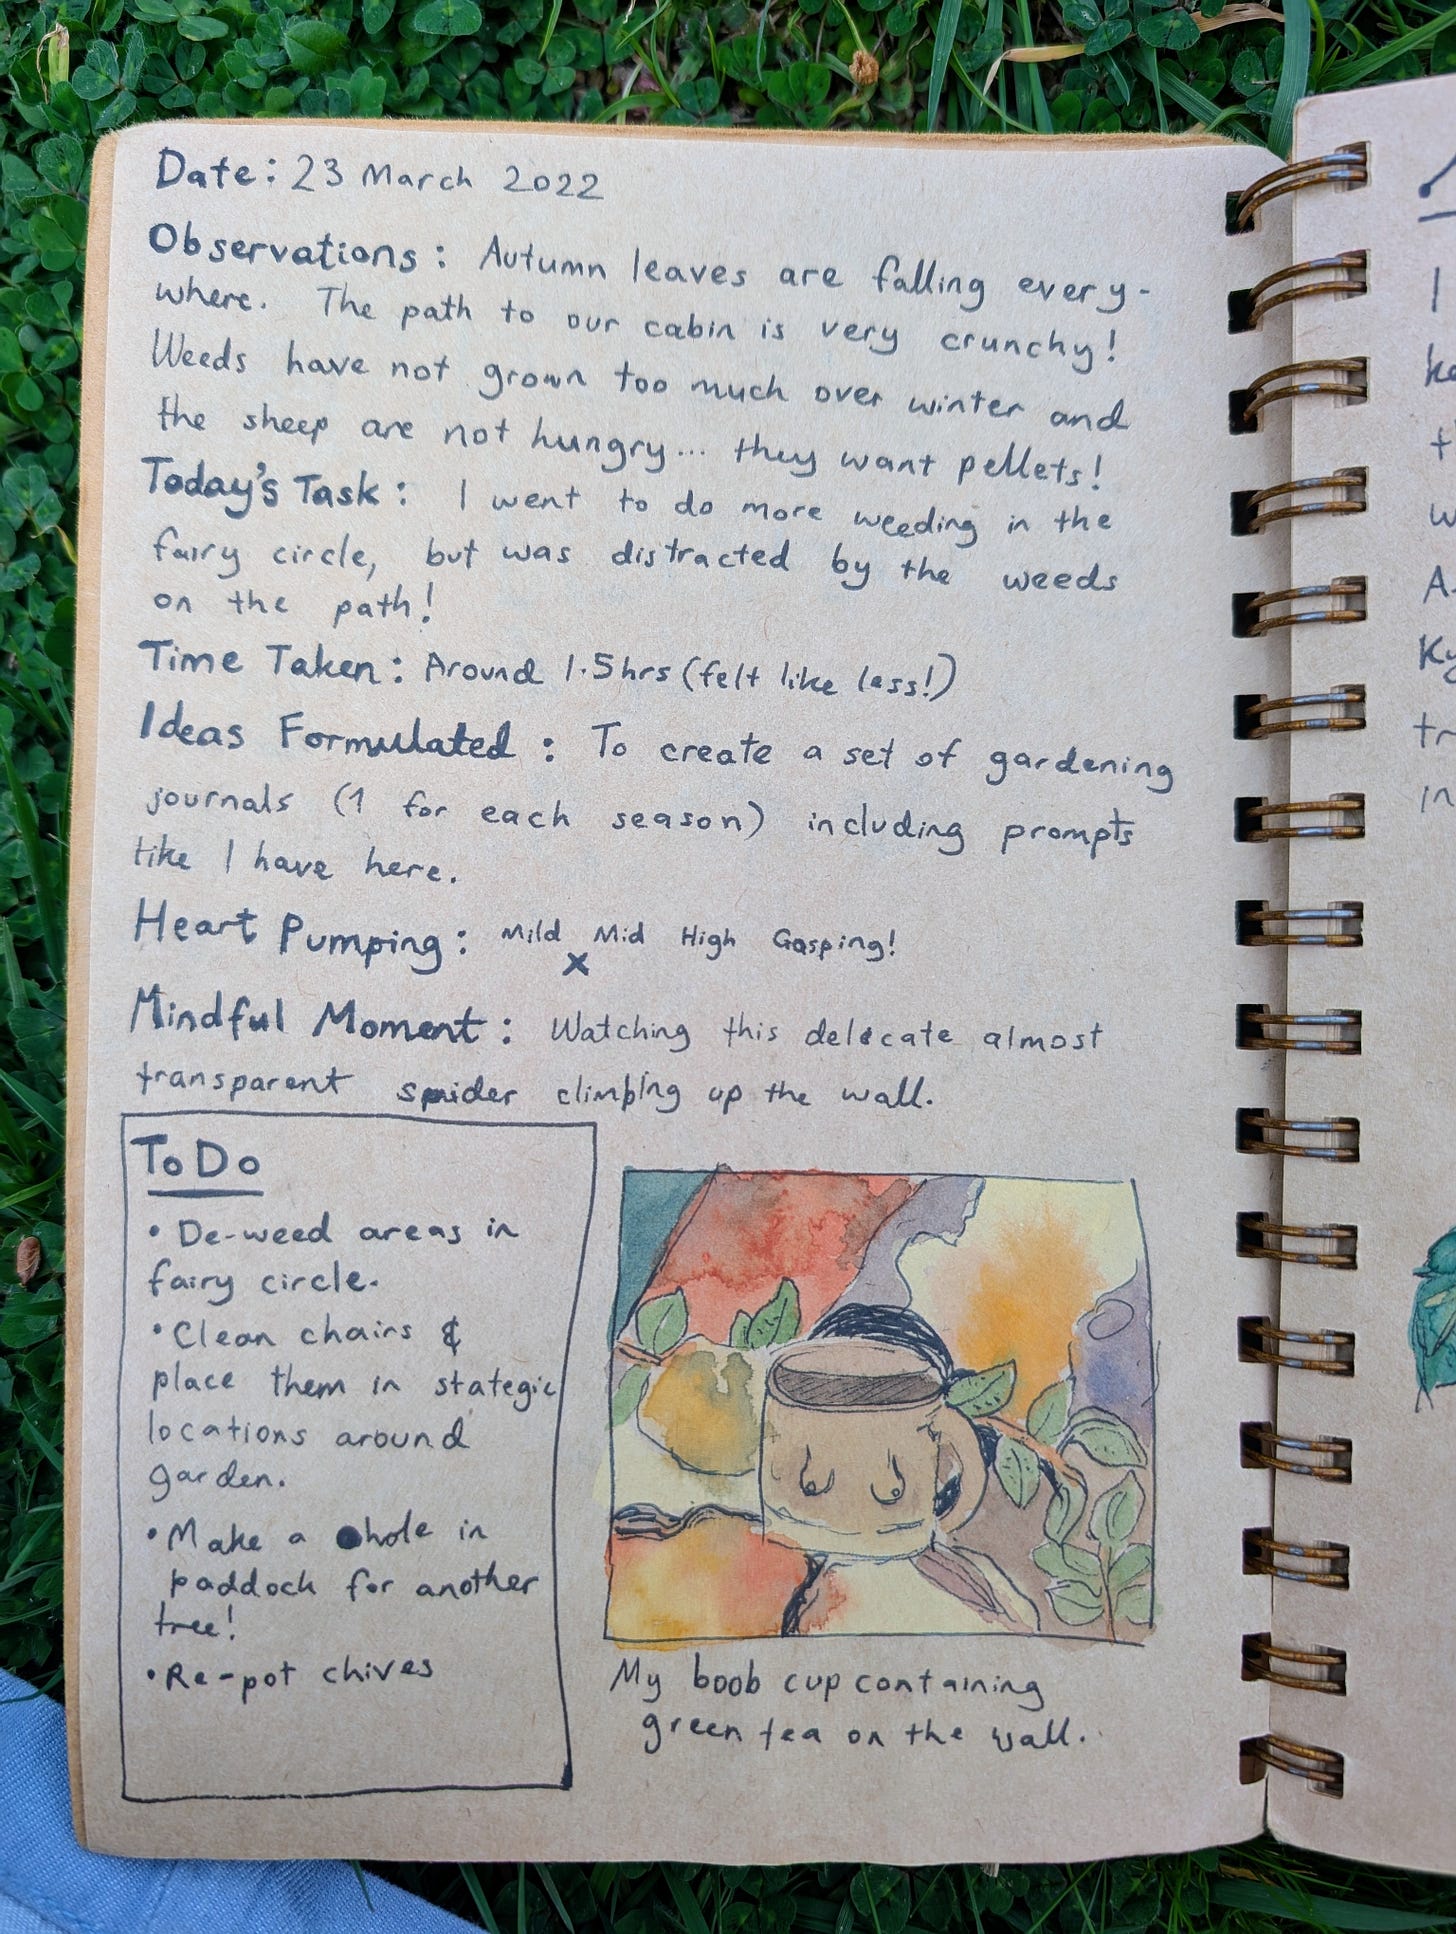 Date: 23 March 2022
Observations: Autumn leaves are falling every-
where. The path to our cabin is very crunchy!
Weeds have not grown too much over winter and
the sheep are not hungry... they want pellets!
Today's Task: I went to do more weeding in the
fairy circle, but was distracted by the weeds
on the path!
Time Taken: Around 1.5hrs (felt like less!)
Ideas Formulated: To create a set of gardening
journals (1 for each season) including prompts
like I have here.
Heart Pumping: Mild Mid High Gasping!
x
Mindful Moment: Watching this delicate almost
transparent spider climbing up the wall.
To Do
• De-weed areas in
fairy circle.
• Clean chairs &
place them in stategic
locations around
garden.
• Make a hole in
paddock for another
tree!
• Re-pot chives
My boob cup containing
green tea on the wall.
I
ke
t
w
A
Ky
tr
in